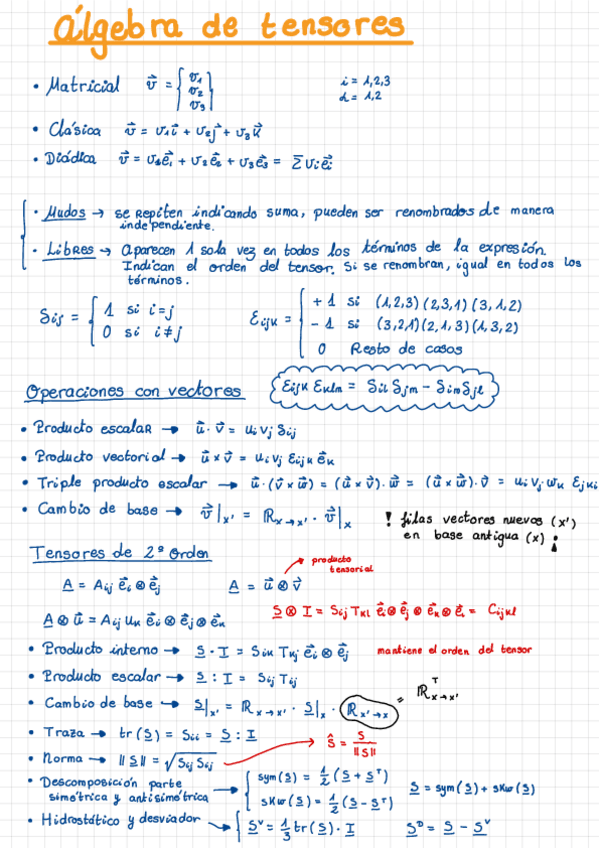 álgebra de tensores
• Matricial v⃗ = {v₁ v₂ v₃} i = 1,2,3
α = 1,2
• Clásica v⃗ = v₁i⃗ + v₂j⃗ + v₃k⃗
• Diádica v⃗ = v₁e⃗₁ + v₂e⃗₂ + v₃e⃗₃ = Σvᵢe⃗ᵢ
• Mudos → se repiten indicando suma, pueden ser renombrados de manera
independiente.
• Libres → aparecen 1 sola vez en todos los términos de la expresión.
Indican el orden del tensor. Si se renombran, igual en todos los
términos.
δij = { 1 si i=j
0 si i≠j
εijk = { +1 si (1,2,3) (2,3,1) (3,1,2)
-1 si (3,2,1) (2,1,3) (1,3,2)
0 Resto de casos
Operaciones con vectores
εijk εklm = δil δjm - δim δjl
• Producto escalar → u⃗ · v⃗ = ui vj δij
• Producto vectorial → u⃗ × v⃗ = ui vj εijk e⃗k
• Triple producto escalar → u⃗ · (v⃗ × w⃗) = (u⃗ × v⃗) · w⃗ = (u⃗ × w⃗) · v⃗ = ui vj wk εjki
• Cambio de base → v⃗|x' = ℝx→x' · v⃗|x
! filas vectores nuevos (x')
en base antigua (x) !
Tensores de 2º orden
producto
tensorial
A = Aij e⃗i ⊗ e⃗j A = u⃗ ⊗ v⃗
A ⊗ u⃗ = Aij uk e⃗i ⊗ e⃗j ⊗ e⃗k
S ⊗ T = Sij Tkl e⃗i ⊗ e⃗j ⊗ e⃗k ⊗ e⃗l = Cijkl
• Producto interno → S · T = Sik Tkj e⃗i ⊗ e⃗j mantiene el orden del tensor
• Producto escalar → S : T = Sij Tij
• Cambio de base → S|x' = ℝx→x' · S|x · ℝx'→x = ℝᵀx→x'
• Traza → tr(S) = Sii = S : I
• Norma → ||S|| = √Sij Sij
Ŝ = S / ||S||
• Descomposición parte
simétrica y antisimétrica
sym(S) = ½ (S + Sᵀ)
skw(S) = ½ (S - Sᵀ)
S = sym(S) + skw(S)
• Hidrostático y desviador → { Sᵛ = ⅓ tr(S) · I Sᴰ = S - Sᵛ